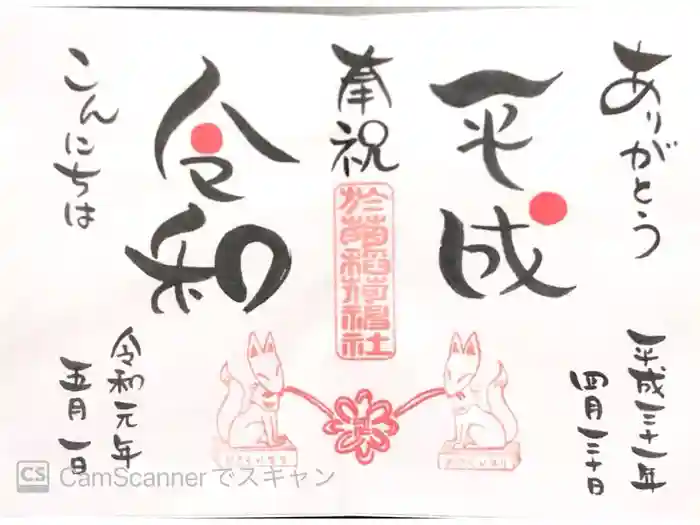 ありがとう
平成
平成三十一年
四月三十日
奉祝
於菊稲荷神社
令和
こんにちは
令和元年
五月一日
CS CamScannerでスキャン